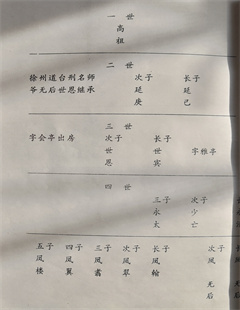 一世
高祖
二世
长子
延己
次子
延庚
徐州道台刑名师
爷无后世恩继承
三世
字雅亭
长子
世宾
次子
世恩
字会亭出房
四世
次子
少亡
三子
永太
次
凤
无后
长子
凤翰
次子
凤翠
三子
凤翥
四子
凤翼
五子
凤楼